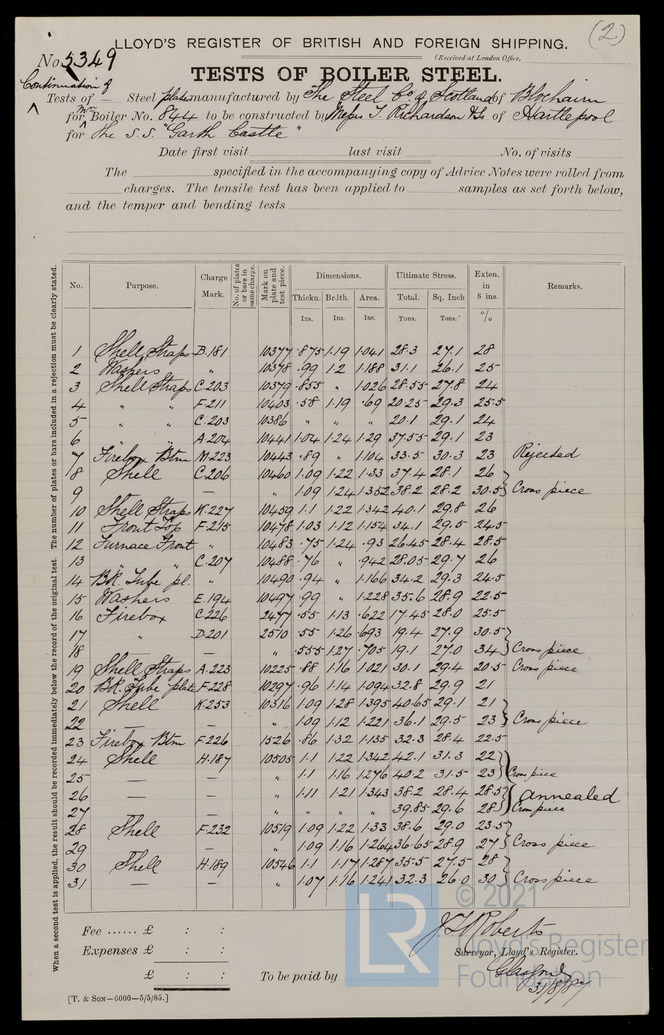 (2)
No. 5349
LLOYD'S REGISTER OF BRITISH AND FOREIGN SHIPPING.
(Received at London Office,
TESTS OF BOILER STEEL.
Continuation of
Tests of — Steel plates manufactured by The Steel Co. of Scotland of Blochairn
for Mn Boiler No. 844 to be constructed by Messrs T. Richardson & Co of Hartlepool
for the S.S. "Garth Castle"
Date first visit last visit No. of visits
The specified in the accompanying copy of Advice Notes were rolled from
charges. The tensile test has been applied to samples as set forth below,
and the temper and bending tests
When a second test is applied, the result should be recorded immediately below the record of the original test. The number of plates or bars included in a rejection must be clearly stated.
No. Purpose. Charge Mark. No. of plates or bars in same charge. Mark on plate and test piece. Dimensions. Ultimate Stress. Exten. in 8 ins. Remarks.
Thickn. Br'dth. Area. Total. Sq. Inch
Ins. Ins. Ins. Tons. Tons. %
1 Shell Straps B.181 10377 .875 1.19 1.041 28.3 27.1 28
2 Washers " 10378 .99 1.2 1.188 31.1 26.1 25
3 Shell Straps C.203 10379 .855 " 1.026 28.55 27.8 24
4 " " F.211 10403 .58 1.19 .69 20.25 29.3 25.5
5 C.203 10386 " " " 20.1 29.1 24
6 " " A.204 10441 1.04 1.24 1.29 37.55 29.1 23
7 Firebox Btm M.223 10443 .89 " 1.104 33.5 30.3 23 Rejected
8 Shell C.206 10460 1.09 1.22 1.33 37.4 28.1 26
9 — " 1.09 1.24 1.352 38.2 28.2 30.5 Cross piece
10 Shell Straps K.227 10459 1.1 1.22 1.342 40.1 29.8 26
11 Front Top F.215 10478 1.03 1.12 1.154 34.1 29.5 24.5
12 Furnace Front " 10483 .75 1.24 .93 26.45 28.4 28.5
13 " " C.207 10488 .76 " .942 28.05 29.7 26
14 Bk. Tube pl. " 10490 .94 " 1.166 34.2 29.3 24.5
15 Washers E.194 10497 .99 " 1.228 35.6 28.9 22.5
16 Firebox C.226 2477 .55 1.13 .622 17.45 28.0 25.5
17 " D.201 2510 .55 1.26 .693 19.4 27.9 30.5
18 — — " .555 1.27 .705 19.1 27.0 34 Cross piece
19 Shell Straps A.223 10225 .88 1.16 1.021 30.1 29.4 20.5 Cross piece
20 Bk. Tube plate F.228 10297 .96 1.14 1.094 32.8 29.9 21
21 Shell K.253 10316 1.09 1.28 1.395 40.65 29.1 21
22 — — " 1.09 1.12 1.221 36.1 29.5 23 Cross piece
23 Firebox Btm F.226 1526 .86 1.32 1.135 32.3 28.4 22.5
24 Shell H.187 10505 1.1 1.22 1.342 42.1 31.3 22
25 — — " 1.1 1.16 1.276 40.2 31.5 23 Cross piece
26 — — 1.11 1.21 1.343 38.2 28.4 28.5 annealed
27 — — " " " " 39.85 29.6 28 Cross piece
28 Shell F.232 10519 1.09 1.22 1.33 38.6 29.0 23.5
29 — — " 1.09 1.16 1.264 36.65 28.9 27 Cross piece
30 Shell H.189 10546 1.1 1.17 1.287 35.5 27.5 28
31 — — " 1.07 1.16 1.241 32.3 26.0 30 Cross piece
Fee ...... £ : :
Expenses £ : :
£ : :
To be paid by
J. Roberts
Surveyor, Lloyd's Register.
Glasgow
31/8/87
[T. & SON—6000—5/5/85.]
LR
© 2021
Lloyd's Register
Foundation